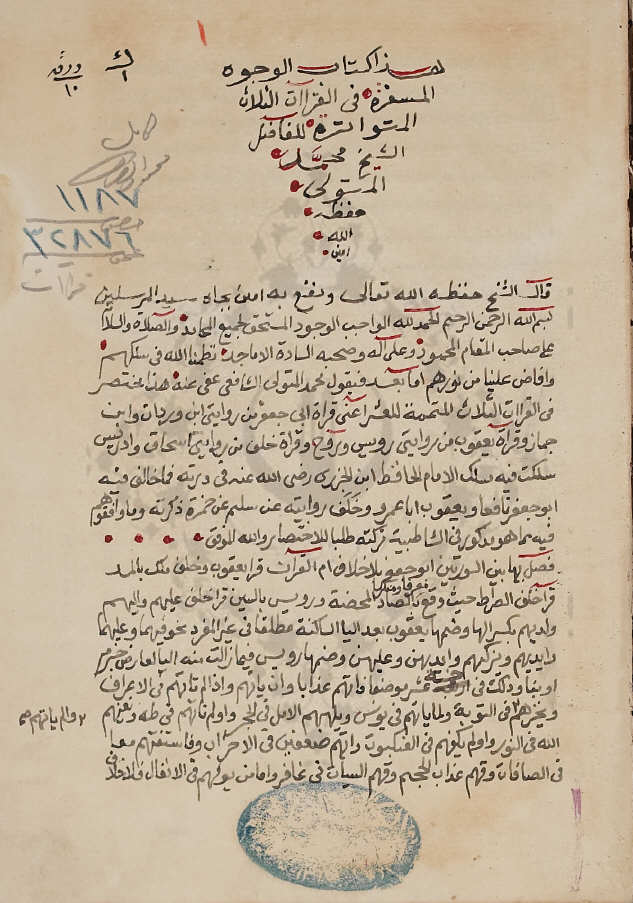 هذا كتاب الوجوه
المسفرة في القراآت الثلاث
المتواترة للفاضل
الشيخ محمد
المتولى
حفظه
الله
امين
ورقة
١٠
كامل
١١٨٧
٣٢٨٧٦
قراآت
قال الشيخ حفظه الله تعالى ونفع به امين بجاه سيد المرسلين
بسم الله الرحمن الرحيم الحمد لله الواجب الوجود المستحق لجميع المحامد والصلاة والسلام
على صاحب المقام المحمود وعلى آله وصحبه السادة الاماجد نظمنا الله في سلكهم
وافاض علينا من نورهم اما بعد فيقول محمد المتولى الشافعي عفى عنه هذا مختصر
في القراآت الثلاث المتممة للعشر اعنى قراة ابي جعفر من روايتي ابن وردان وابن
جماز وقراة يعقوب من روايتي رويس وروح وقراة خلف من روايتي اسحاق وادريس
سلكت فيه مسلك الامام الحافظ ابن الجزرى رضى الله عنه في درته فما خالف فيه
ابو جعفر نافعا ويعقوب ابا عمرو وخلف روايته عن سليم عن حمزة ذكرته وما وافقوهم
فيه مما هو مذكور في الشاطبية تركته طلبا للاختصار والله الموفق
فصل بها بين السورتين ابو جعفر بلا خلاف ام القران قرا يعقوب وخلف ملك بالمد
قرا خلف الصراط حيث وقع بالصاد المحضة ورويس بالسين قرا خلف عليهم واليهم
ولديهم بكسر الها وضمها يعقوب بعد اليا الساكنة مطلقا في غير المفرد نحو فيهما وعليهما
وايديهم ويزكيهم وايديهن وعليهن وضمها رويس فيما زالت منه اليا لعارض جزم
او بنا وذلك في عشر موضعا فاتهم عذابا وان ياتهم واذا لم تاتهم في الاعراف
ويخزهم في التوبة ولما ياتهم في يونس ويلههم الامل في الحجر واولم تاتهم في طه ويغنهم
الله في النور واولم يكفهم في العنكبوت واتهم ضعفين في الاحزاب وفاستفتهم معا
في الصافات وقهم عذاب الجحيم وقهم السيات في غافر واما من يولهم في الانفال فلا خلاف